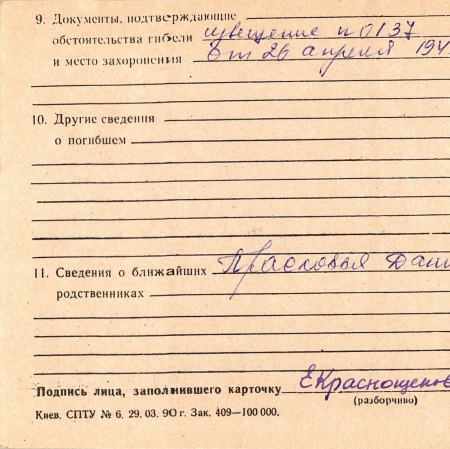 9. Документы, подтверждающие
обстоятельства гибели извещение п 0137
и место захоронения от 26 апреля 194
10. Другие сведения
о погибшем
11. Сведения о ближайших Прасковья Дани
родственниках
Подпись лица, заполнившего карточку ЕКраснощеков
(разборчиво)
Киев. СПТУ № 6. 29. 03. 90 г. Зак. 409—100 000.